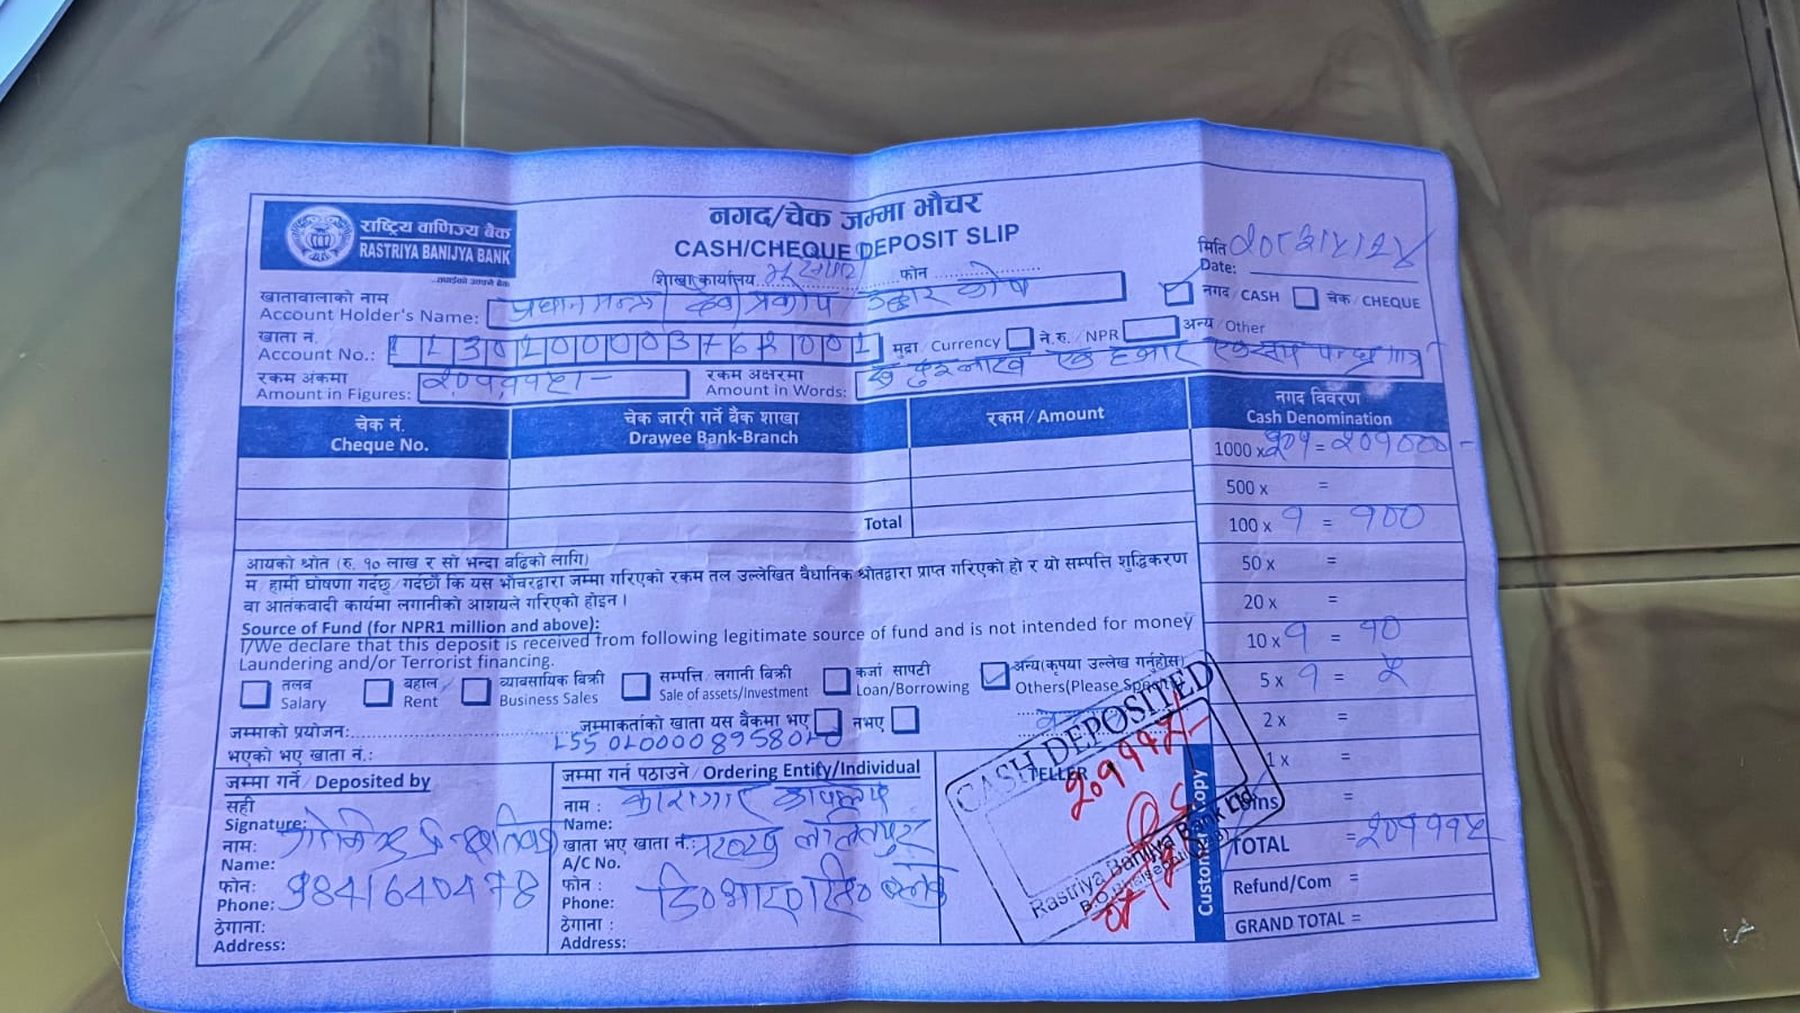 राष्ट्रिय वाणिज्य बैंक
RASTRIYA BANIJYA BANK
...तपाईंको आफ्नै बैंक
नगद/चेक जम्मा भौचर
CASH/CHEQUE DEPOSIT SLIP
शाखा कार्यालय फोन
मिति
Date:
खातावालाको नाम
Account Holder's Name: प्रधानमन्त्री दैवी प्रकोप उद्धार कोष
नगद/CASH चेक/CHEQUE
खाता नं.
Account No.: मुद्रा/Currency ने.रु./NPR अन्य/Other
रकम अंकमा
Amount in Figures: २०१११५।-
रकम अक्षरमा
Amount in Words: एक हजार एकसय पन्ध्र मात्र
चेक नं.
Cheque No.
चेक जारी गर्ने बैंक शाखा
Drawee Bank-Branch
रकम/Amount
नगद विवरण
Cash Denomination
1000 x २०१ = २०१०००-
500 x =
100 x १ = १००
50 x =
20 x =
10 x १ = १०
5 x १ = ५
2 x =
1 x =
Coins =
TOTAL = २०१११५
Refund/Com =
GRAND TOTAL =
Total
आयको श्रोत (रु. १० लाख र सो भन्दा बढिको लागि)
म/हामी घोषणा गर्दछु/गर्दछौं कि यस भौचरद्वारा जम्मा गरिएको रकम तल उल्लेखित वैधानिक श्रोतद्वारा प्राप्त गरिएको हो र यो सम्पत्ति शुद्धिकरण
वा आतंकवादी कार्यमा लगानीको आशयले गरिएको होइन।
Source of Fund (for NPR1 million and above):
I/We declare that this deposit is received from following legitimate source of fund and is not intended for money
Laundering and/or Terrorist financing.
तलब
Salary
बहाल
Rent
व्यावसायिक बिक्री
Business Sales
सम्पत्ति/लगानी बिक्री
Sale of assets/Investment
कर्जा/सापटी
Loan/Borrowing
अन्य(कृपया उल्लेख गर्नुहोस)
Others(Please Specify)
जम्माको प्रयोजन: जम्माकर्ताको खाता यस बैंकमा भए नभए
भएको भए खाता नं.:
जम्मा गर्ने/Deposited by
सही
Signature:
नाम:
Name:
फोन:
Phone: 9841640478
ठेगाना:
Address:
जम्मा गर्न पठाउने/Ordering Entity/Individual
नाम: कारागार कार्यालय
Name:
खाता भए खाता नं.: ललितपुर
A/C No.
फोन:
Phone:
ठेगाना:
Address:
CASH DEPOSITED
TELLER
२०१११५/-
Rastriya Banijya Bank Ltd.
Customer Copy